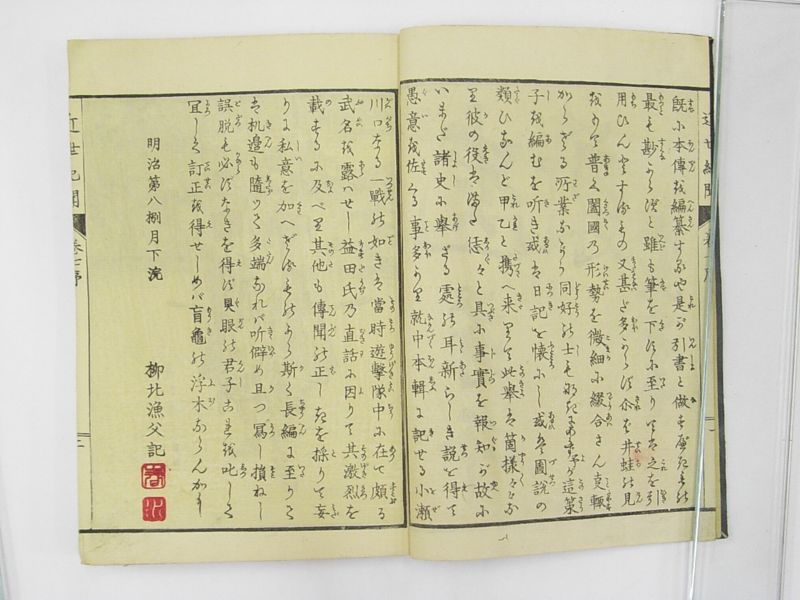 近世紀聞
既に本傳を編纂するや是が引書と做すべきもの
最も尠からずと雖も筆を下すに至りては之を引
用ひんとするもの又甚だ多からず井蛙の見
をもて普く闔國の形勢を微細に綴合さん輙
からざる所業なり同好の士も予が這策
子を編むを听き或は日記を懐にし或は圖説の
類ひなんど甲乙と携へ来りて此擧は箇様々々な
り彼の役は恁々と具に事實を報知るが故に
いまだ諸史に擧ざる處の耳新らしき説を得て
愚意を佐くる事多かり就中本輯に記せる小瀬
川口なる一戰の如きは當時遊撃隊中に在て頗る
武名を露はせし益田氏の直話に因りて其激烈を
載するに及べり其他も傳聞の正しきを採りて妄
りに私意を加へざるものから斯く長編に至りて
は机邊も隨つて多端なれば听僻め且つ冩し損ねし
誤脱も必ずなきを得ず具眼の君子を叱して
宜しく訂正を得せしめば盲龜の浮木ならんかし
明治第八捌月下浣
柳北漁父記
近世紀聞 巻七序